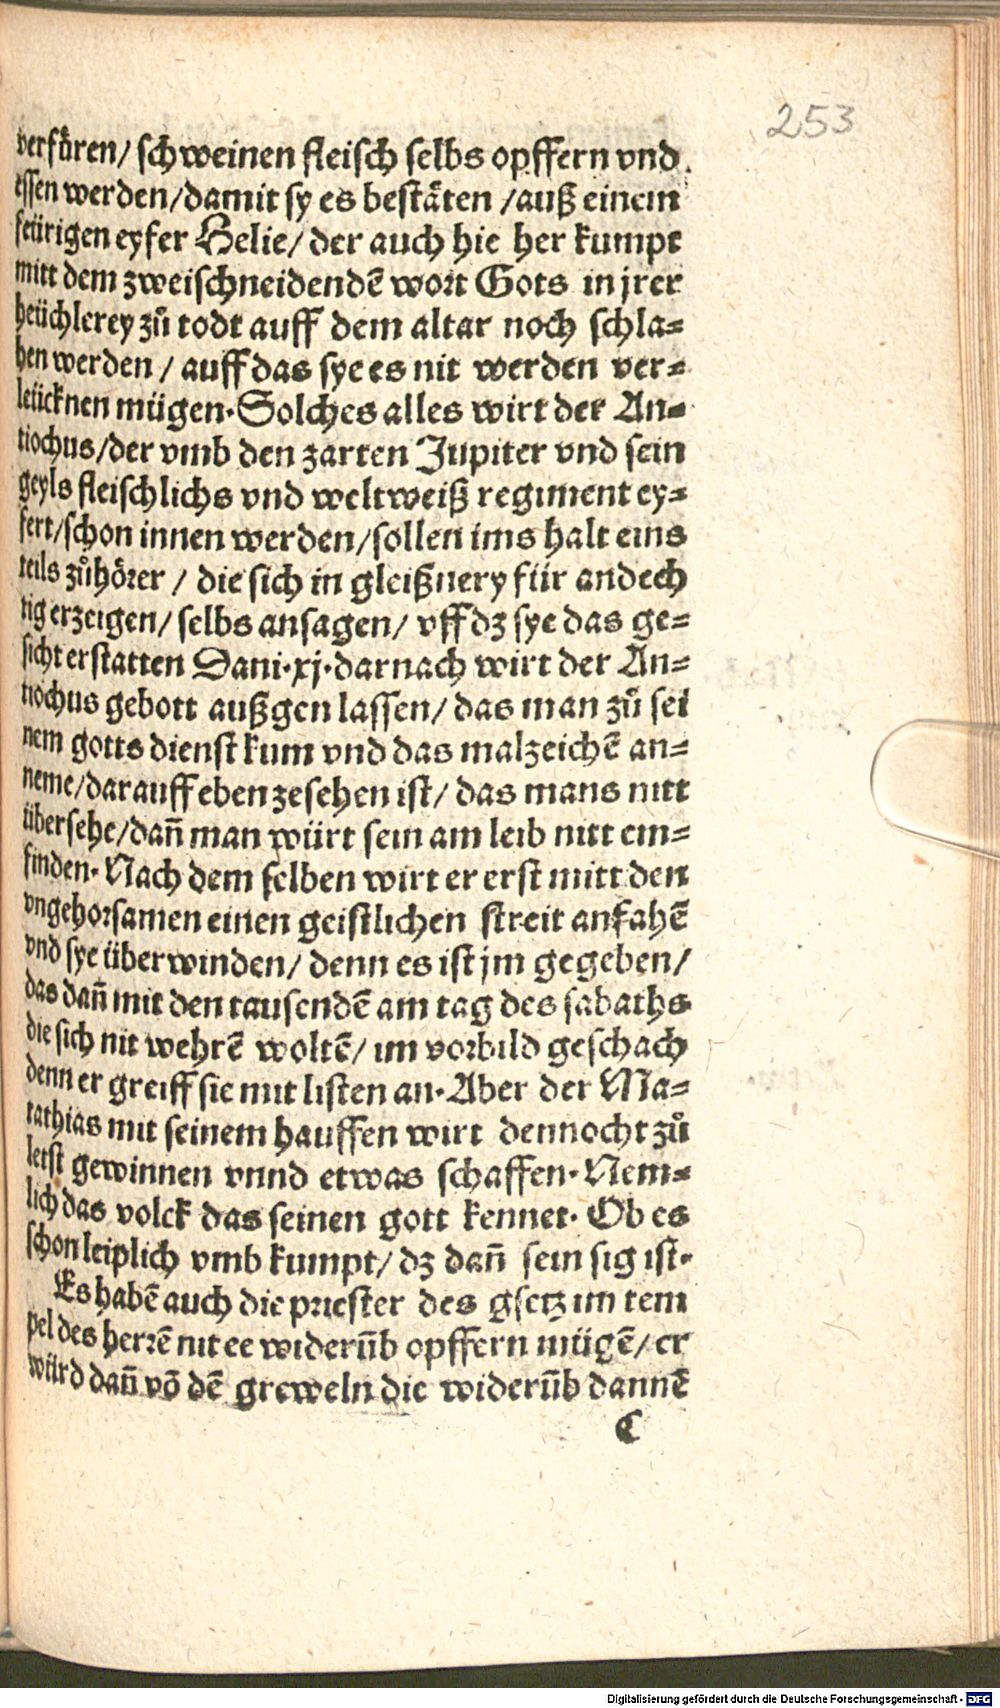 253
verfûren/ schweinen fleisch selbs opffern vnd
essen werden/damit sy es bestäten /auß einem
feürigen eyfer Helie/ der auch hie her kumpt
mitt dem zweischneidendē wort Gots in jrer
heüchlerey zů todt auff dem altar noch schla-
hen werden / auff das sye es nit werden ver-
leücknen mügen. Solches alles wirt der An-
tiochus/der vmb den zarten Jupiter vnd sein
geyls fleischlichs vnd weltweiß regiment ey-
fert/schon innen werden/sollen ims halt eins
teils zůhörer / die sich in gleißnery für andech
tig erzeigen/ selbs ansagen/ vff dz sye das ge-
sicht erstatten Dani. xj. darnach wirt der An-
tiochus gebott außgen lassen/ das man zů sei
nem gotts dienst kum vnd das malzeichē an-
neme/darauff eben zesehen ist/ das mans nitt
übersehe/dañ man würt sein am leib nitt em-
finden. Nach dem selben wirt er erst mitt den
vngehorsamen einen geistlichen streit anfahē
vnd sye überwinden/ denn es ist jm gegeben/
das dañ mit den tausendē am tag des sabaths
die sich nit wehrē woltē/ im vorbild geschach
denn er greiff sie mit listen an. Aber der Ma-
tathias mit seinem hauffen wirt dennocht zů
letst gewinnen vnnd etwas schaffen. Nem-
lich das volck das seinen gott kennet. Ob es
schon leiplich vmb kumpt/ dz dañ sein sig ist.
Es habē auch die priester des gsetz im tem
pel des herrē nit ee widerūb opffern mügē/ er
würd dañ vō dē greweln die widerūb dannē
C
Digitalisierung gefördert durch die Deutsche Forschungsgemeinschaft - DFG